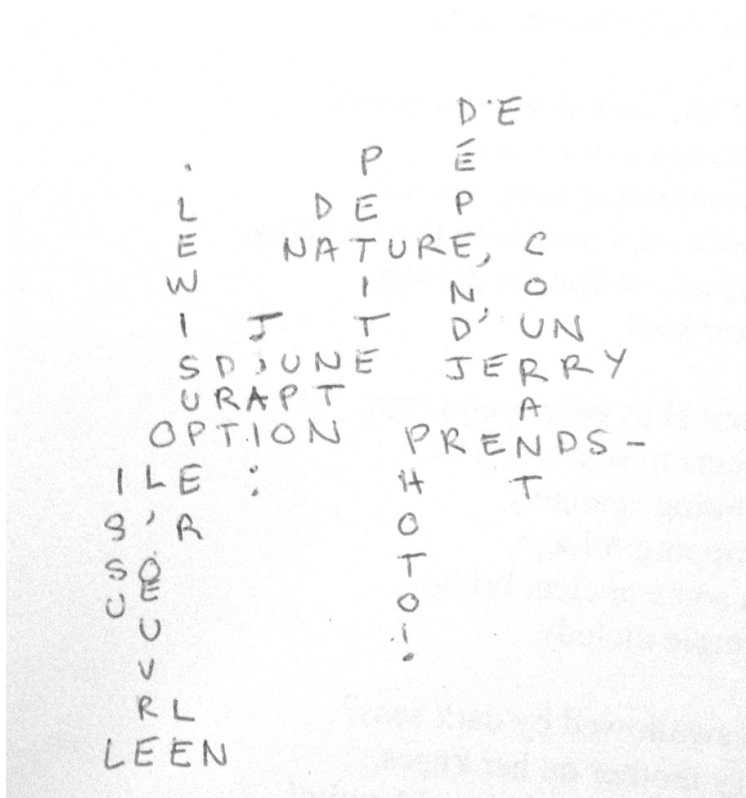 D'E
P É
L D E P
E NATURE, C
W I N, O
I J T D'UN
S D'UNE JERRY
URAPT A
OPTION PRENDS-
ILE : H T
S'R O
S O T
U E O
U i
V
R L
LEEN